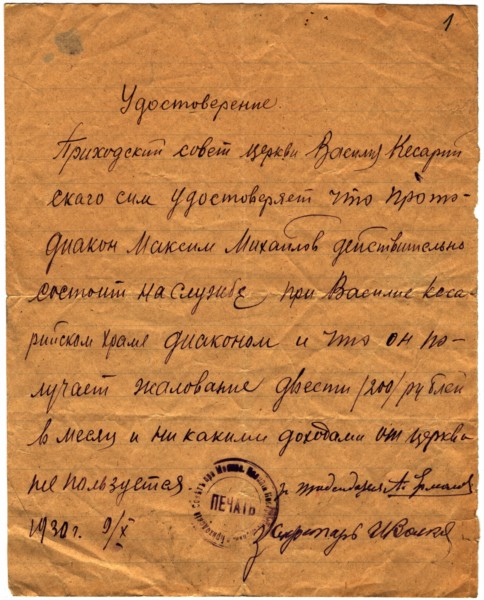 1
Удостоверение.
Приходский совет церкви Василия Кесарий
скаго сим удостоверяет что прото-
диакон Максим Михайлов действительно
состоит на службе при Василие Кеса-
рийском храме диаконом и что он по-
лучает жалование двести /200/ рублей
в месяц и никакими доходами от церкви
не пользуется.
ПЕЧАТЬ
1930 г. 9/X Секретарь